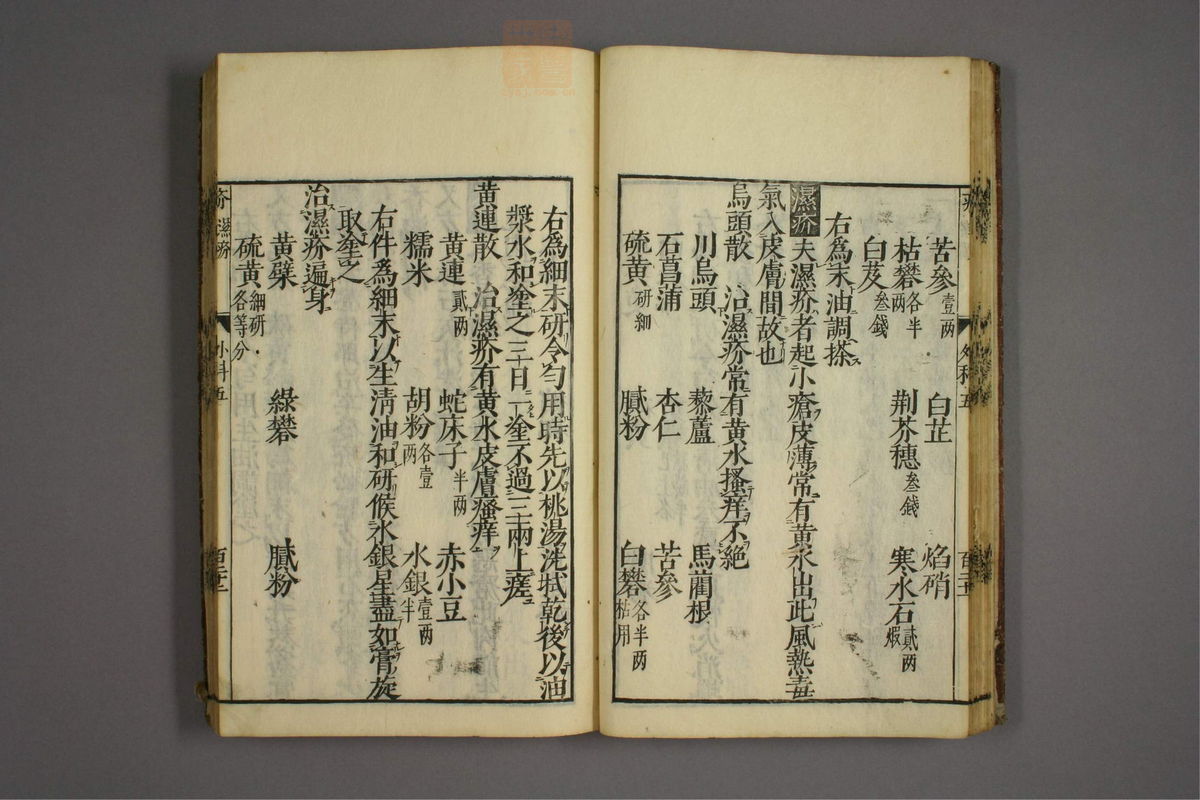 苦參壹兩 白芷 焰硝
枯礬各半兩 荆芥穗叁錢 寒水石貳兩煆
白芨叁錢
右爲末油調搽
濕疥 夫濕疥者起小瘡皮薄常有黄水出此風熱毒
氣入皮膚間故也
烏頭散 治濕疥常有黄水搔痒不絶
川烏頭 藜蘆 馬藺根
石菖蒲 杏仁 苦參
硫黄研細 膩粉 白礬各半兩枯用
右爲細末研令匀用時先以桃湯洗拭乾後以油
漿水和塗之三日一塗不過三二兩上瘥
黄連散 治濕疥有黄水皮膚瘙痒
黄連貳兩 蛇床子半兩 赤小豆
糯米 胡粉各壹兩 水銀壹兩半
右件爲細末以生清油和研候水銀星盡如膏旋
取塗之
治濕疥遍身
黄蘗 綠礬 膩粉
硫黄細研各等分
疥 濕疥 外科五
外科五